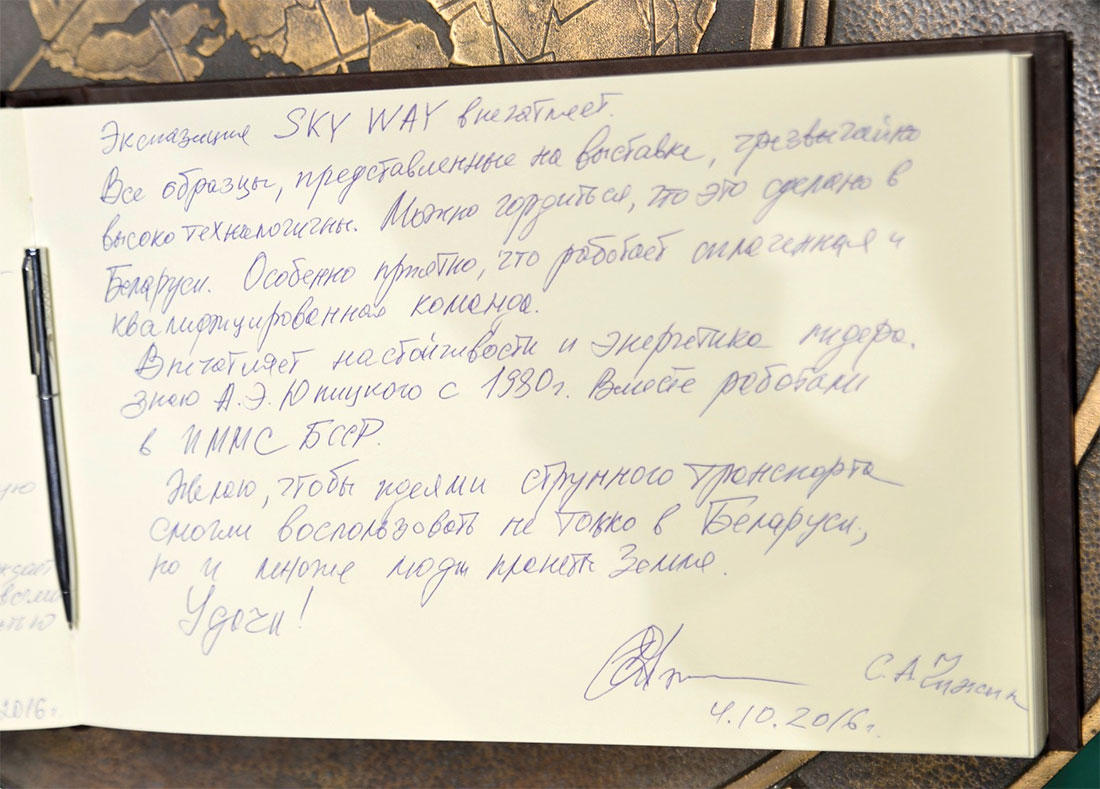 Экспазиция SKY WAY впечатляет.
Все образцы, представленные на выставке, чрезвычайно
высокотехнологичны. Можно гордиться, что это сделано в
Беларуси. Особенно приятно, что работает сплоченная и
квалифицированная команда.
Впечатляет настойчивость и энергетика лидера.
Знаю А.Э. Юницкого с 1980г. Вместе работали
в ИММС БССР.
Желаю, чтобы идеями струнного транспорта
смогли воспользовать не только в Беларуси,
но и многие люди планеты Земля.
Удачи!
С.А. Чижик
4.10.2016г.
ую
ждает
2016г.